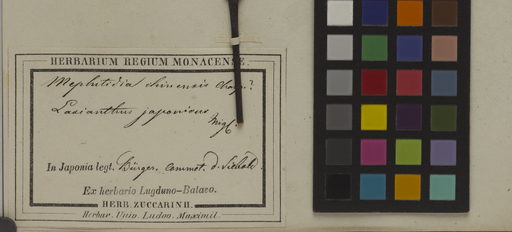 HERBARIUM REGIUM MONACENSE.
Mephitidia chinensis Champ.?
Lasianthus japonicus
Miq.
In Japonia legt. Bürger. commot. d. Siebold.
Ex herbario Lugduno-Batavo.
HERB. ZUCCARINII.
Herbar. Univ. Ludov. Maximil.